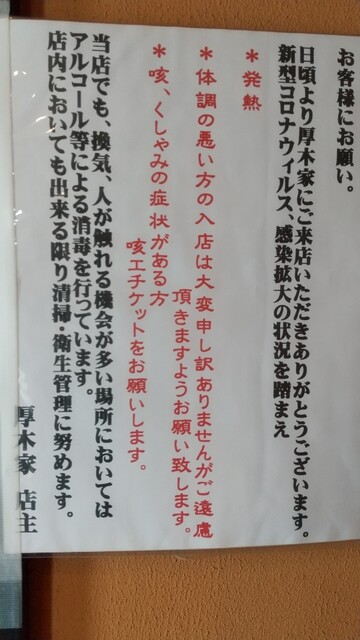 お客様にお願い。
日頃より厚木家にご来店いただきありがとうございます。
新型コロナウィルス、感染拡大の状況を踏まえ
＊発熱
＊体調の悪い方の入店は大変申し訳ありませんがご遠慮
頂きますようお願い致します。
＊咳、くしゃみの症状がある方
咳エチケットをお願いします。
当店でも、換気、人が触れる機会が多い場所においては
アルコール等による消毒を行っています。
店内においても出来る限り清掃・衛生管理に努めます。
厚木家 店主